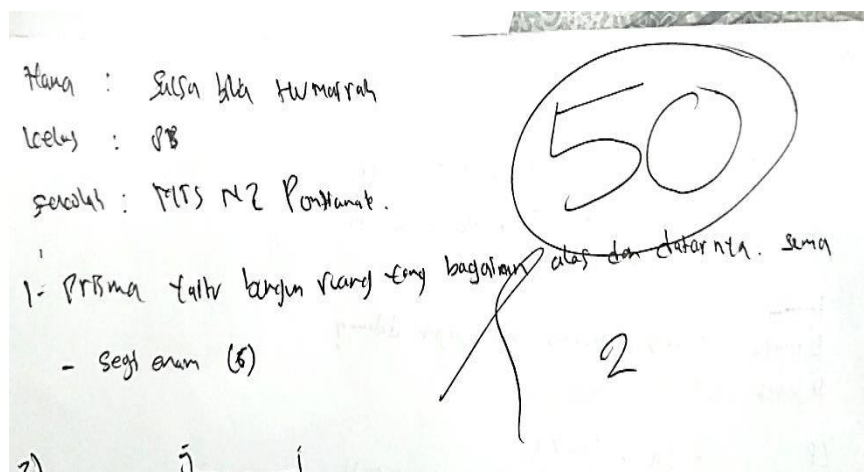 Nama : Salsa bila Humairah
kelas : 8B
sekolah : MTS N2 Pontianak.
50
1- Prisma yaitu bangun ruang yang bagaiman alas dan datarnya. sama
- segi enam (6)
2
2) j i